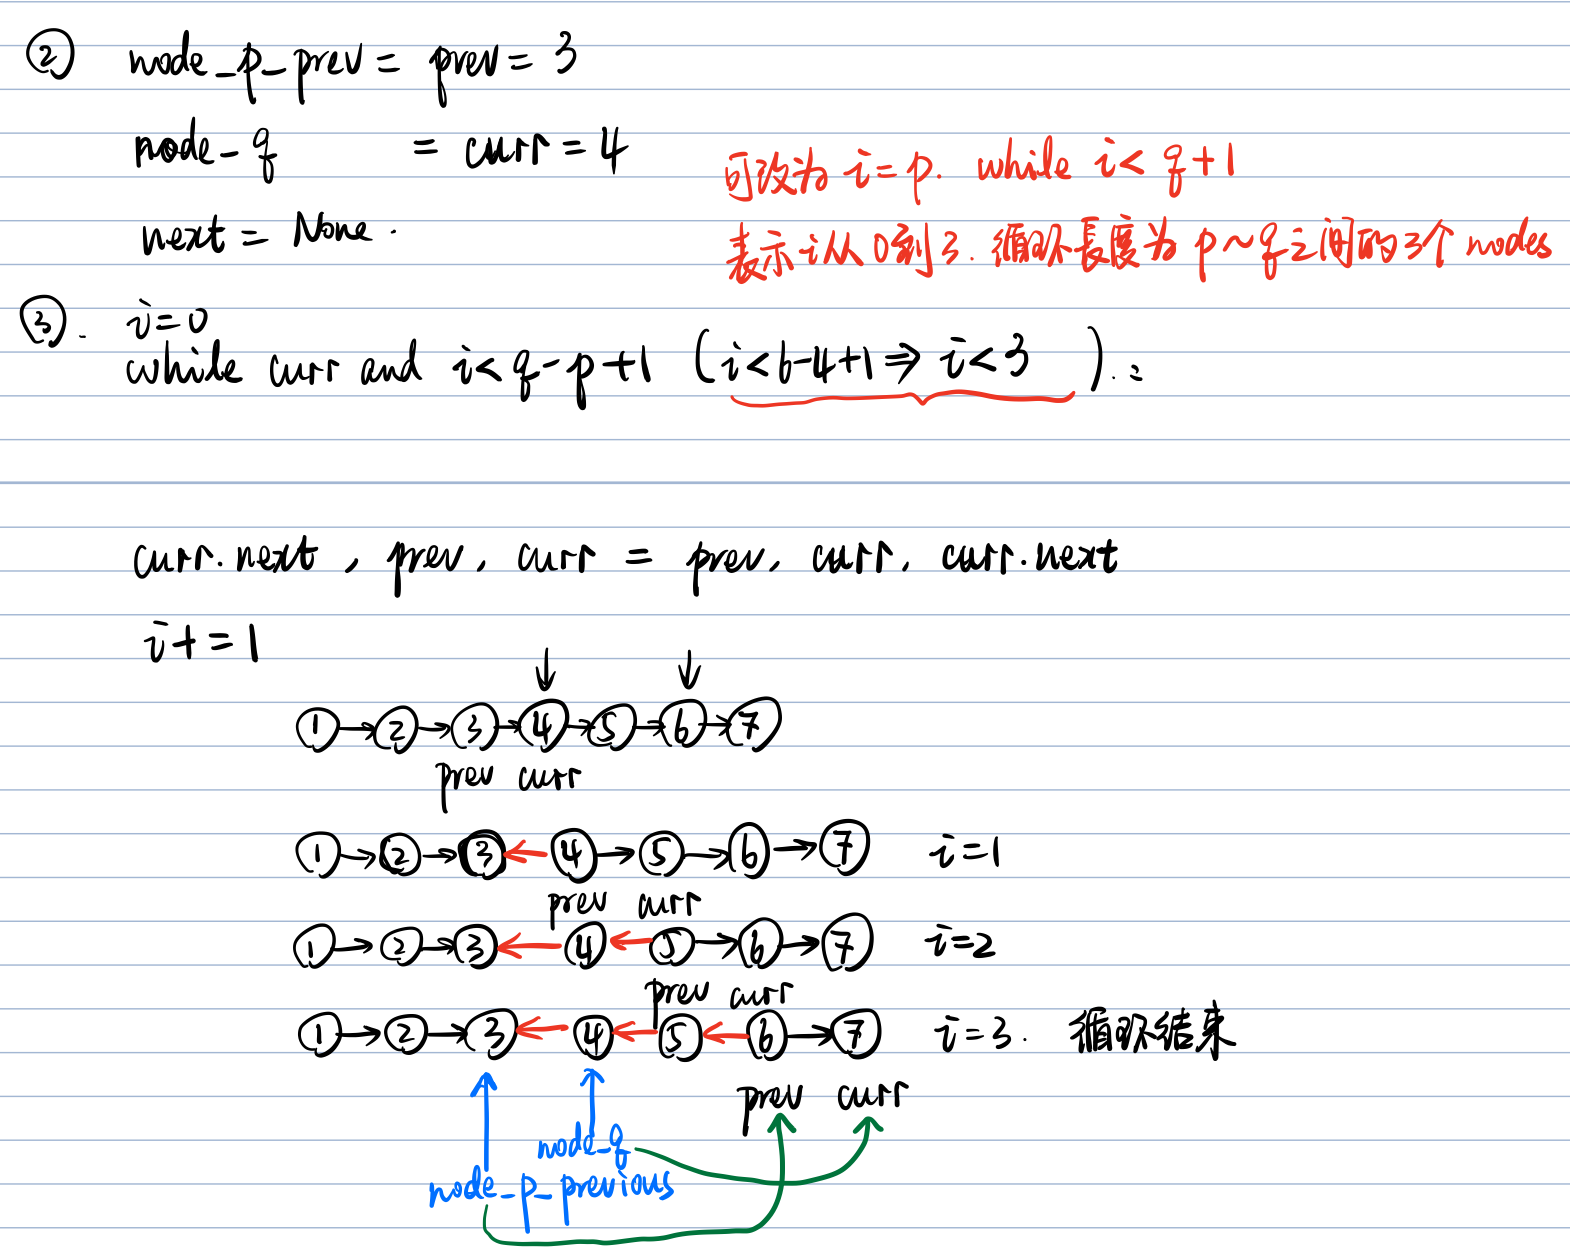 ② node_p_prev = prev = 3
node_q = curr = 4
可改为 i=p. while i< q+1
next = None.
表示i从0到3. 循环長度为 p~q之间的3个 nodes
③. i=0
while curr and i< q-p+1 (i<6-4+1⇒ i<3 ). :
curr.next, prev, curr = prev, curr, curr.next
i+=1
↓ ↓
①→②→③→④→⑤→⑥→⑦
prev curr
①→②→③←④→⑤→⑥→⑦ i=1
prev curr
①→②→③←④←⑤→⑥→⑦ i=2
prev curr
①→②→③←④←⑤←⑥→⑦ i=3. 循环结束
prev curr
node_q
node_p_previous